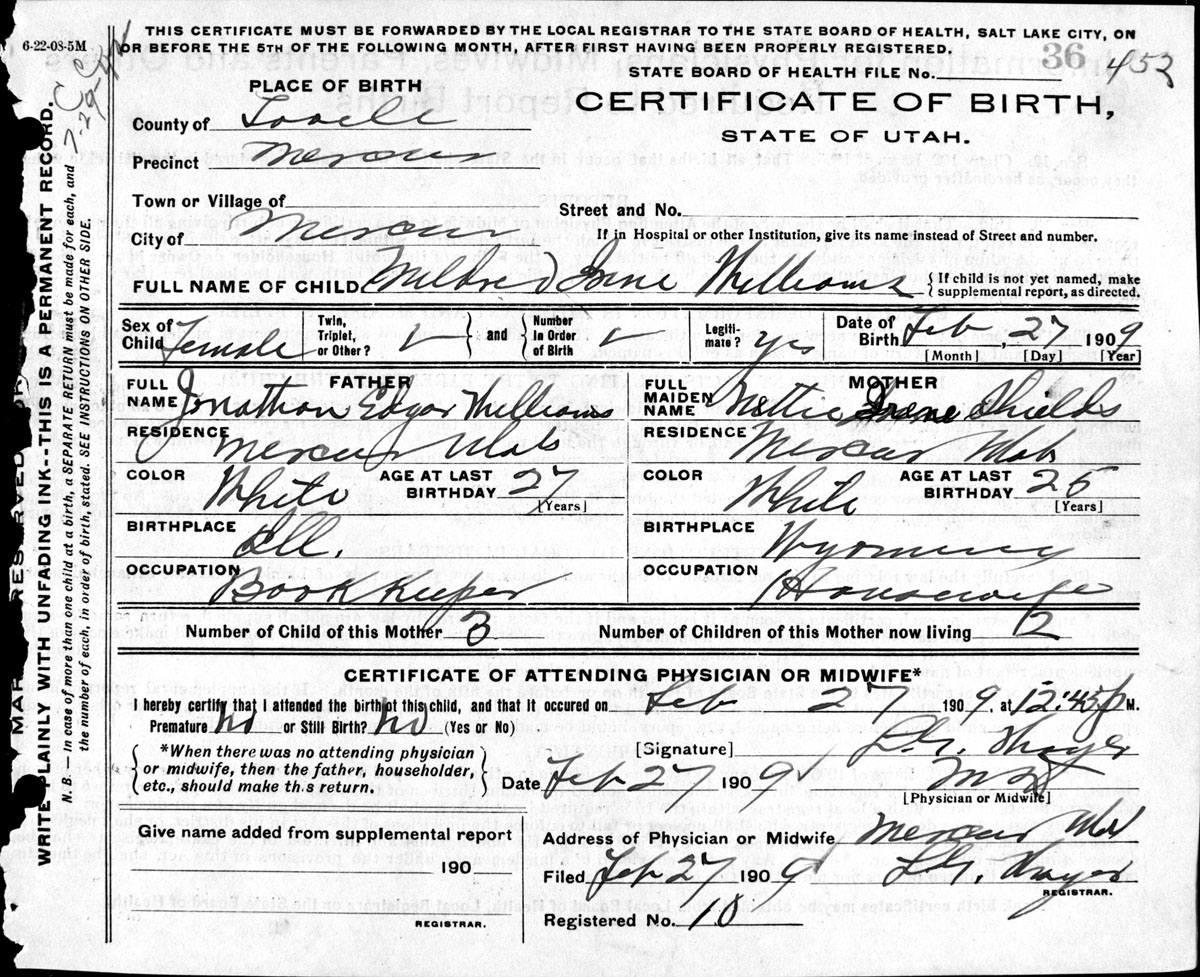 6-22-08-5M
THIS CERTIFICATE MUST BE FORWARDED BY THE LOCAL REGISTRAR TO THE STATE BOARD OF HEALTH, SALT LAKE CITY, ON
OR BEFORE THE 5TH OF THE FOLLOWING MONTH, AFTER FIRST HAVING BEEN PROPERLY REGISTERED.
36
STATE BOARD OF HEALTH FILE No. 452
PLACE OF BIRTH
CERTIFICATE OF BIRTH,
STATE OF UTAH.
County of Tooele
Precinct Mercur
Town or Village of
Street and No.
City of Mercur
If in Hospital or other Institution, give its name instead of Street and number.
FULL NAME OF CHILD Mildred Irene Williams
{If child is not yet named, make
supplemental report, as directed.
Sex of Child Female
Twin, Triplet, or Other? and Number In Order of Birth
Legitimate? yes
Date of Birth Feb, 27 1909
[Month] [Day] [Year]
FATHER
FULL NAME Jonathan Edgar Williams
MOTHER
FULL MAIDEN NAME Nettie Irene Shields
RESIDENCE Mercur Utah
RESIDENCE Mercur Utah
COLOR White AGE AT LAST BIRTHDAY 27 [Years]
COLOR White AGE AT LAST BIRTHDAY [Years]
BIRTHPLACE Ill.
BIRTHPLACE Wyoming
OCCUPATION Book Keeper
OCCUPATION Housewife
Number of Child of this Mother 3
Number of Children of this Mother now living 2
CERTIFICATE OF ATTENDING PHYSICIAN OR MIDWIFE*
I hereby certify that I attended the birth of this child, and that it occured on Feb 27 1909, at 12:45 P M.
Premature No or Still Birth? No (Yes or No)
{*When there was no attending physician
or midwife, then the father, householder,
etc., should make this return.}
[Signature]
Date Feb 27 1909
M D
[Physician or Midwife]
Give name added from supplemental report
190
REGISTRAR.
Address of Physician or Midwife Mercur Utah
Filed Feb 27 1909
REGISTRAR.
Registered No. 10
MARGIN RESERVED FOR
WRITE PLAINLY WITH UNFADING INK--THIS IS A PERMANENT RECORD.
N.B.—In case of more than one child at a birth, a SEPARATE RETURN must be made for each, and
the number of each, in order of birth, stated. SEE INSTRUCTIONS ON OTHER SIDE.